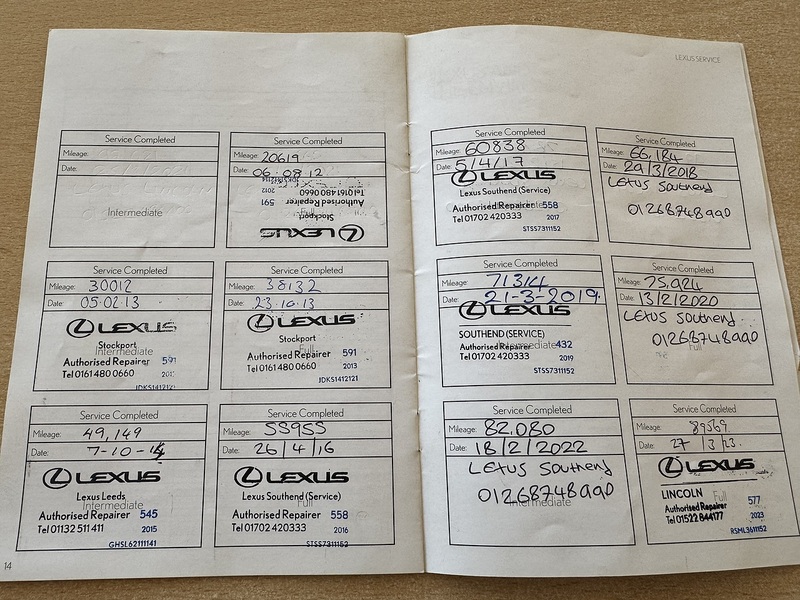 LEXUS SERVICE
Service Completed
Mileage:
Date:
Intermediate
Service Completed
Mileage: 20619
Date: 06 08 12
2012
Tel 0161 480 0660
Authorised Repairer 591
Full
Stockport
LEXUS
Service Completed
Mileage: 30012
Date: 05.02.13
LEXUS
Stockport
Intermediate
Authorised Repairer 591
Tel 0161 480 0660
JDKS1412121
Service Completed
Mileage: 38132
Date: 23.10.13
LEXUS
Stockport
Full
Authorised Repairer 591
Tel 0161 480 0660 2013
JDKS1412121
Service Completed
Mileage: 49,149
Date: 7-10-
LEXUS
Lexus Leeds
Intermediate
Authorised Repairer 545
Tel 01132 511 411 2015
GHSL62111141
Service Completed
Mileage: 55955
Date: 26/4/16
LEXUS
Lexus Southend (Service)
Full
Authorised Repairer 558
Tel 01702 420333 2016
STSS7311152
14
Service Completed
Mileage: 60838
Date: 5/4/17
LEXUS
Lexus Southend (Service)
Intermediate
Authorised Repairer 558
Tel 01702 420333 2017
STSS7311152
Service Completed
Mileage: 66,184
Date: 29/3/2018
LEXUS Southend
01268748990
Service Completed
Mileage: 71314
Date: 21-3-2019.
LEXUS
SOUTHEND (SERVICE)
Intermediate
Authorised Repairer 432
Tel 01702 420333 2019
STSS7311152
Service Completed
Mileage: 75,924
Date: 13/2/2020
LEXUS Southend
01268748990
Full
Service Completed
Mileage: 82.080
Date: 18/2/2022
LEXUS Southend
01268748990
Intermediate
Service Completed
Mileage: 89569
Date: 27/3/23.
LEXUS
LINCOLN
Full
Authorised Repairer 577
Tel 01522 844177 2023
RSML3611152